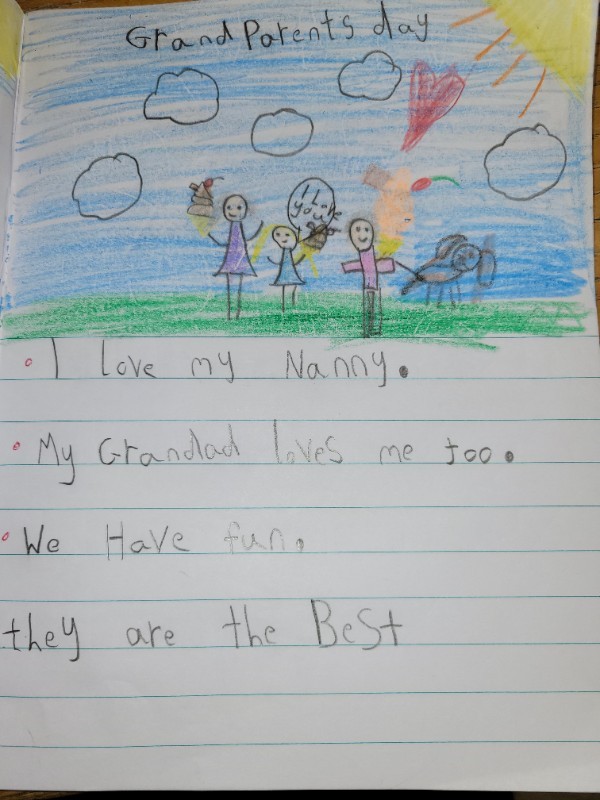 GrandParents day
I Love
you
I love my Nanny.
My Grandad loves me too.
We Have fun.
they are the BeSt